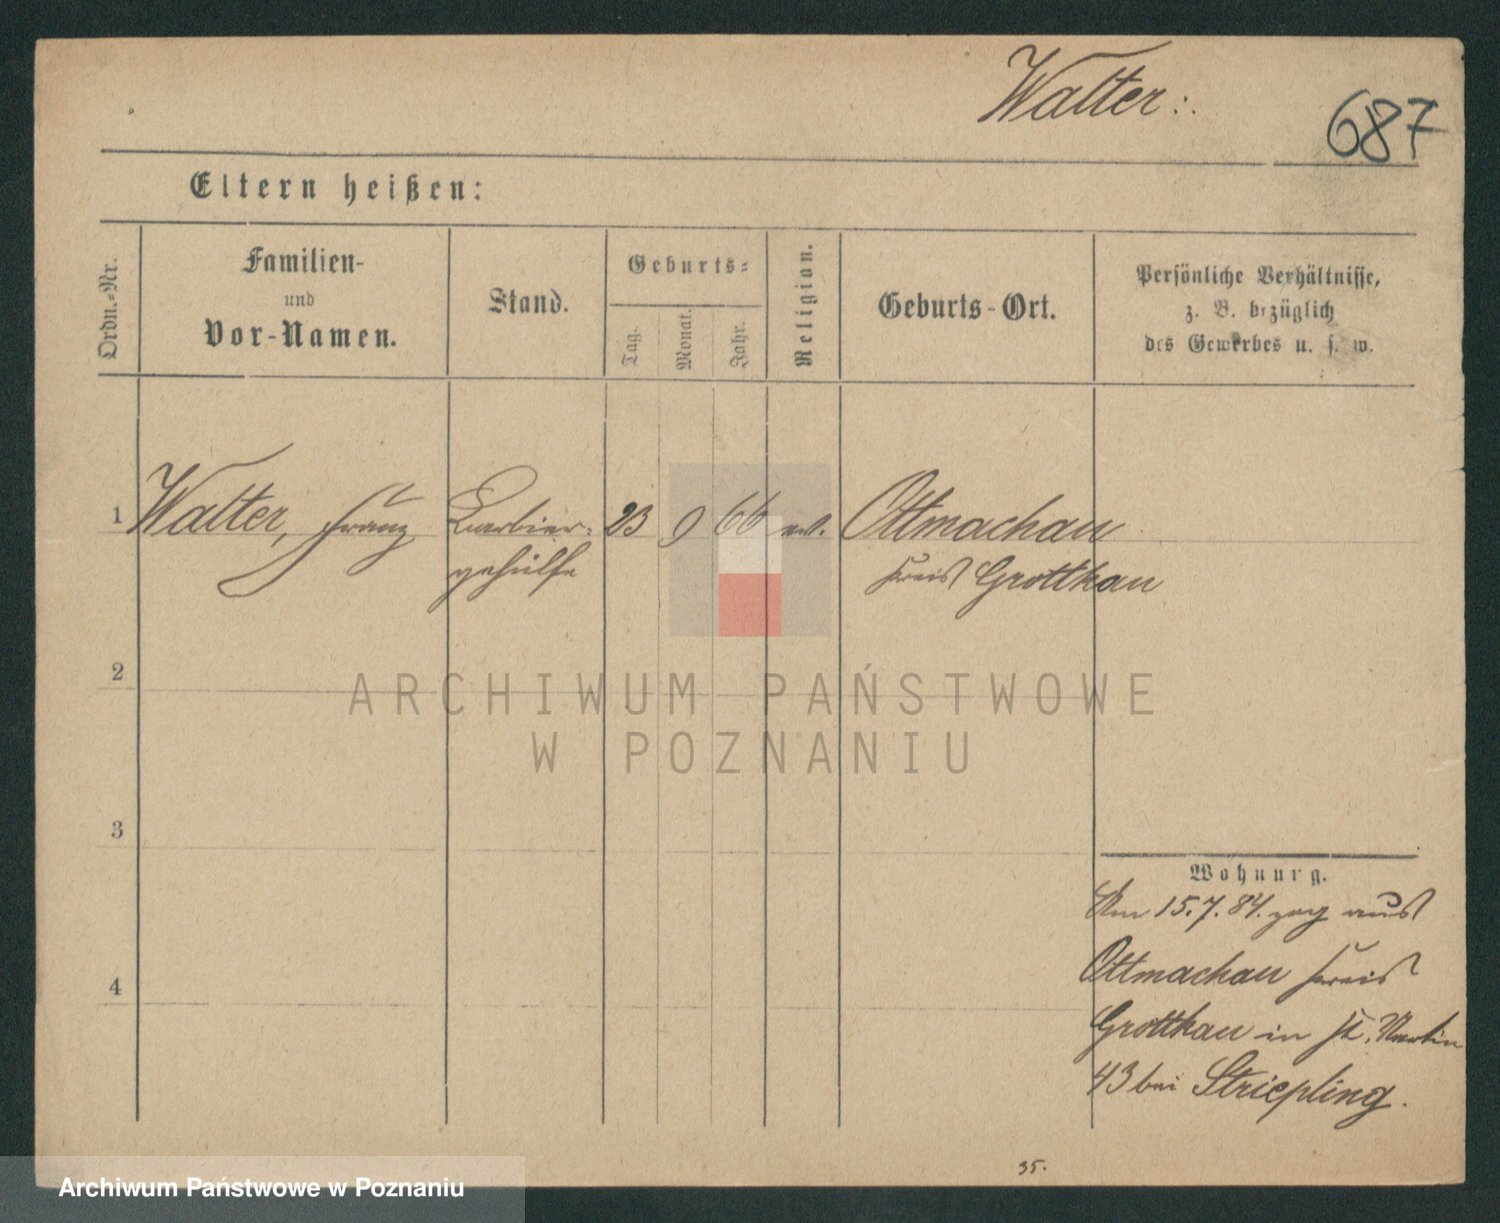 Walter :.
687
Eltern heißen:
Ordn.-Nr.
Familien-
und
Vor-Namen.
Stand.
Geburts-
Tag.
Monat.
Jahr.
Religion.
Geburts-Ort.
Persönliche Verhältnisse,
z. B. bezüglich
des Gewerbes u. s. w.
1 Walter, Franz Barbier- 23 9 66 ev. Ottmachau
gehülfe Kreis Grottkau
2
ARCHIWUM PAŃSTWOWE
W POZNANIU
3
Wohnung.
Am 15.7.84. zog aus
4 Ottmachau Kreis
Grottkau in St. Martin
43 bei Striepling.
35.
Archiwum Państwowe w Poznaniu